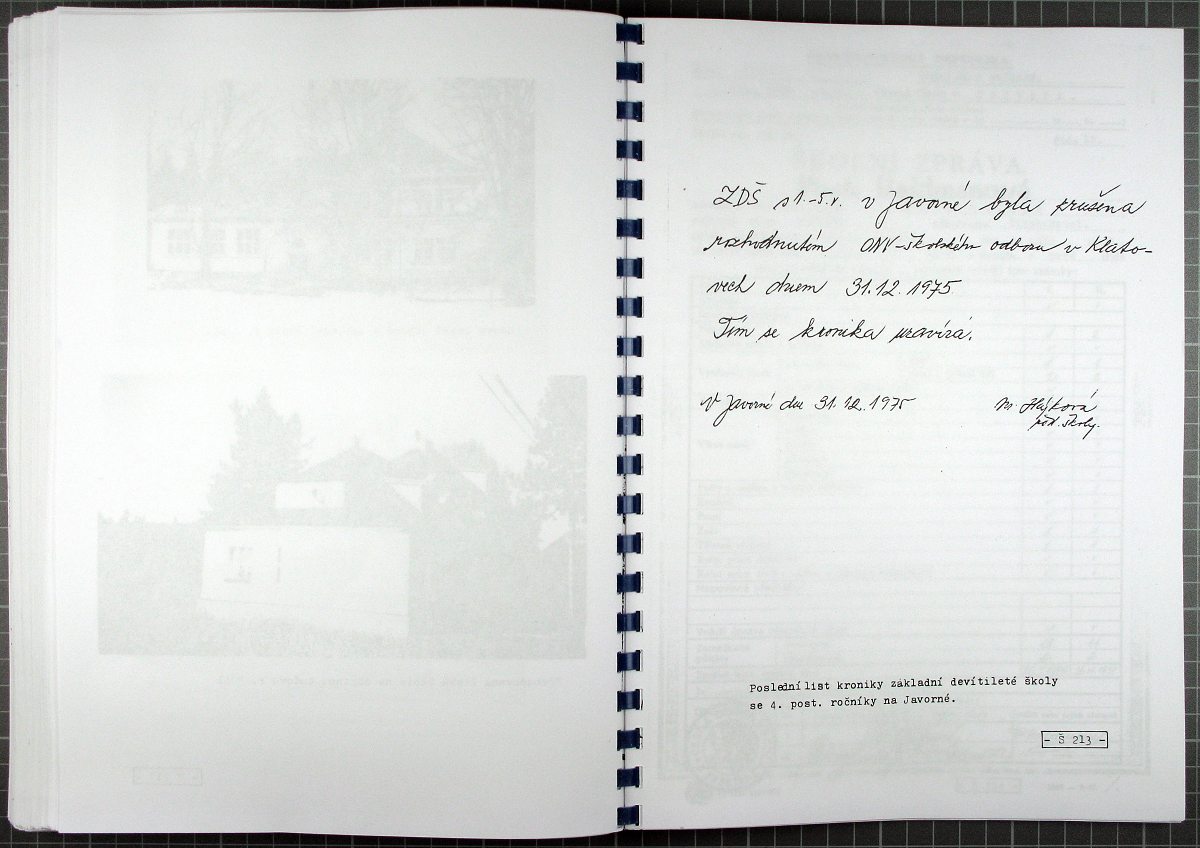 ZDŠ s 1.-5.r. v Javorné byla zrušena
rozhodnutím ONV-školského odboru v Klato-
vech dnem 31.12.1975
Tím se kronika uzavírá.
V Javorné dne 31.12.1975 M. Hajková
řed. školy.
Poslední list kroniky základní devítileté školy
se 4. post. ročníky na Javorné.
- Š 213 -